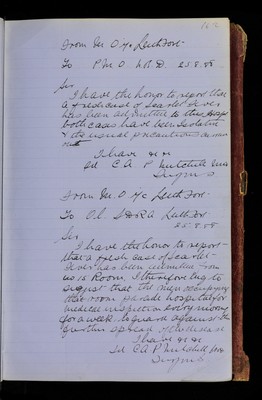 From M.O. i/c Leith Fort
To P.M.O. N.B.D. 25.8.08
Sir
I have the honor to report that
a fresh case of Scarlet Fever
has been admitted to this
both cases have been isolated
& the usual precautions
I have &c &c
Sd C A P Mitchell
Surgn
From M.O. i/c Leith Fort
To O.C. Leith Fort
25.8.08
Sir,
I have the honor to report
that a fresh case of Scarlet
Fever has been admitted from
Room. I therefore beg to
suggest that the men occupying
this room parade hospital for
medical inspection every morning
for a week to guard against the
further spread of the disease
I have &c &c
Sd C A P Mitchell
Surgn